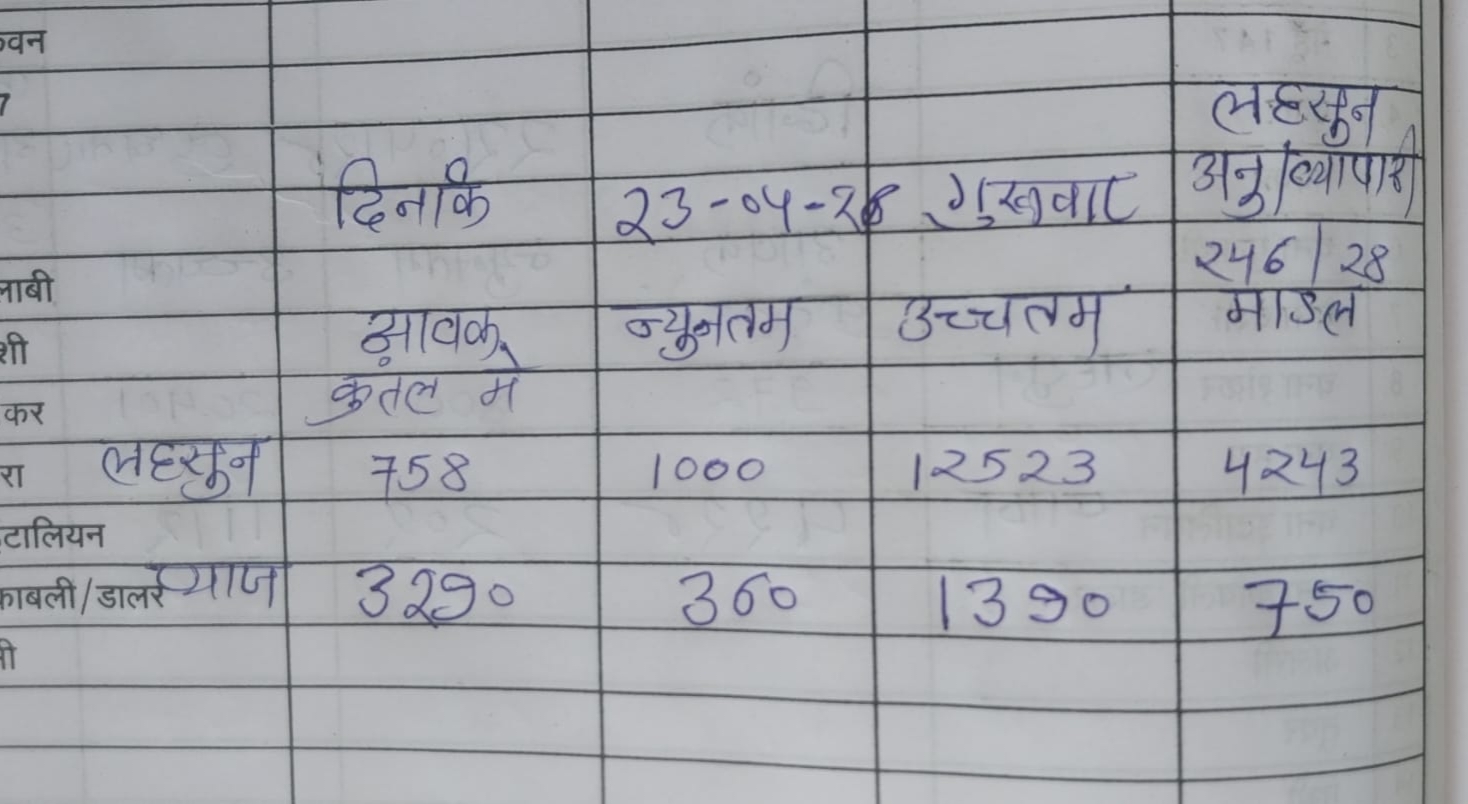 वन
लहसुन
दिनांक 23-04-26 गुरूवार अनु/व्यापारी
246/28
लाबी
आवक न्यूनतम उच्चतम माडल
शी
कुतल मे
कर
रा लहसुन 758 1000 12523 4243
टालियन
काबली/डालर प्याज 3290 360 1390 750